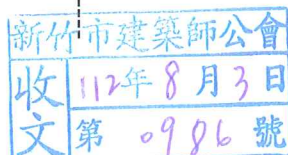 新竹市建築師公會
收文
112年8月3日
第0986號